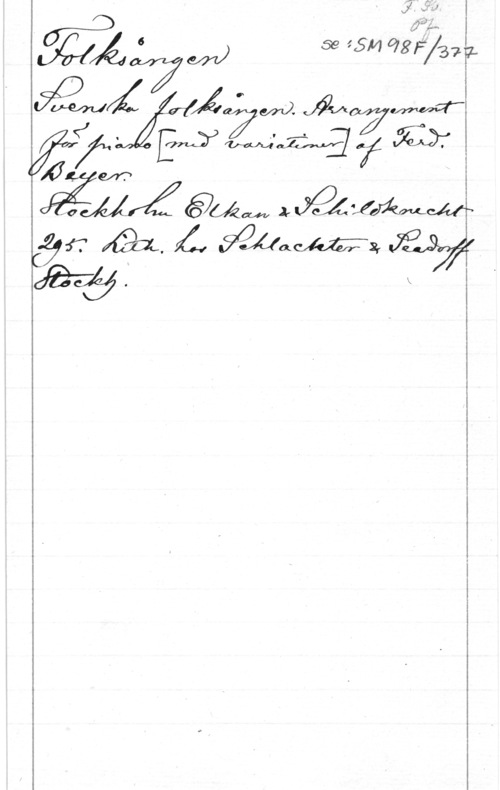 F. Sv.
Pf
Folksången
se: SM98F/377
Svenska folksången. Arrangement
för piano [med variationer] af Ferd.
Beyer.
Stockholm Elkan & Schildknecht
295. Lith. hos Schlachter & Seedorff
Stockh.